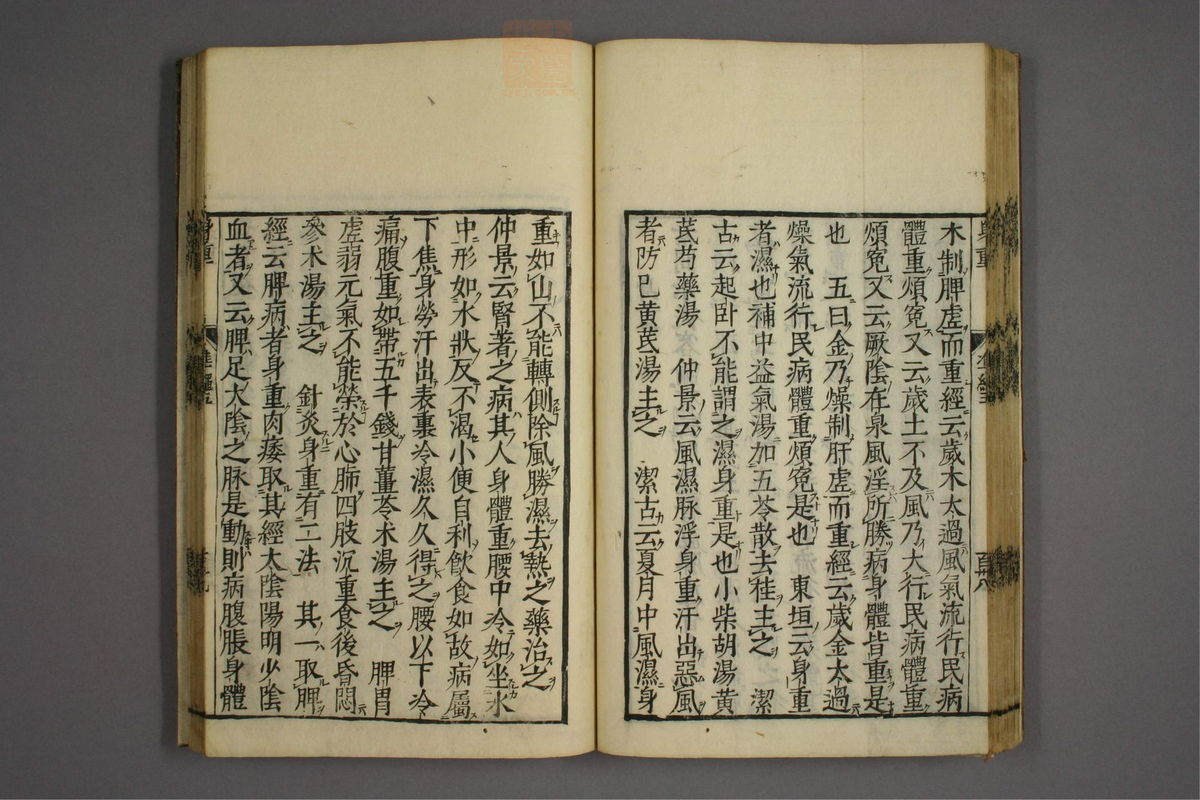 木制脾虛而重經云歲木太過風氣流行民病
體重煩冤又云歲土不及風乃大行民病體重
煩冤又云厥陰在泉風淫所勝病身體皆重是
也 五曰金乃燥制肝虛而重經云歲金太過
燥氣流行民病體重煩冤是也 東垣云身重
者濕也補中益氣湯加五苓散去桂主之 潔
古云起卧不能謂之濕身重是也小柴胡湯黃
芪芍藥湯 仲景云風濕脉浮身重汗出惡風
者防已黄芪湯主之 潔古云夏月中風濕身
重如山不能轉側除風勝濕去熱之藥治之
仲景云腎著之病其人身體重腰中冷如坐水
中形如水狀反不渴小便自利飲食如故病屬
下焦身勞汗出表裏冷濕久久得之腰以下冷
痛腹重如帶五千錢甘薑苓术湯主之 脾胃
虛弱元氣不能榮於心肺四肢沉重食後昏悶
參术湯主之 針灸身重有二法 其一取脾
經云脾病者身重肉痿取其經太陰陽明少陰
血者又云脾足太陰之脉是動則病腹脹身體